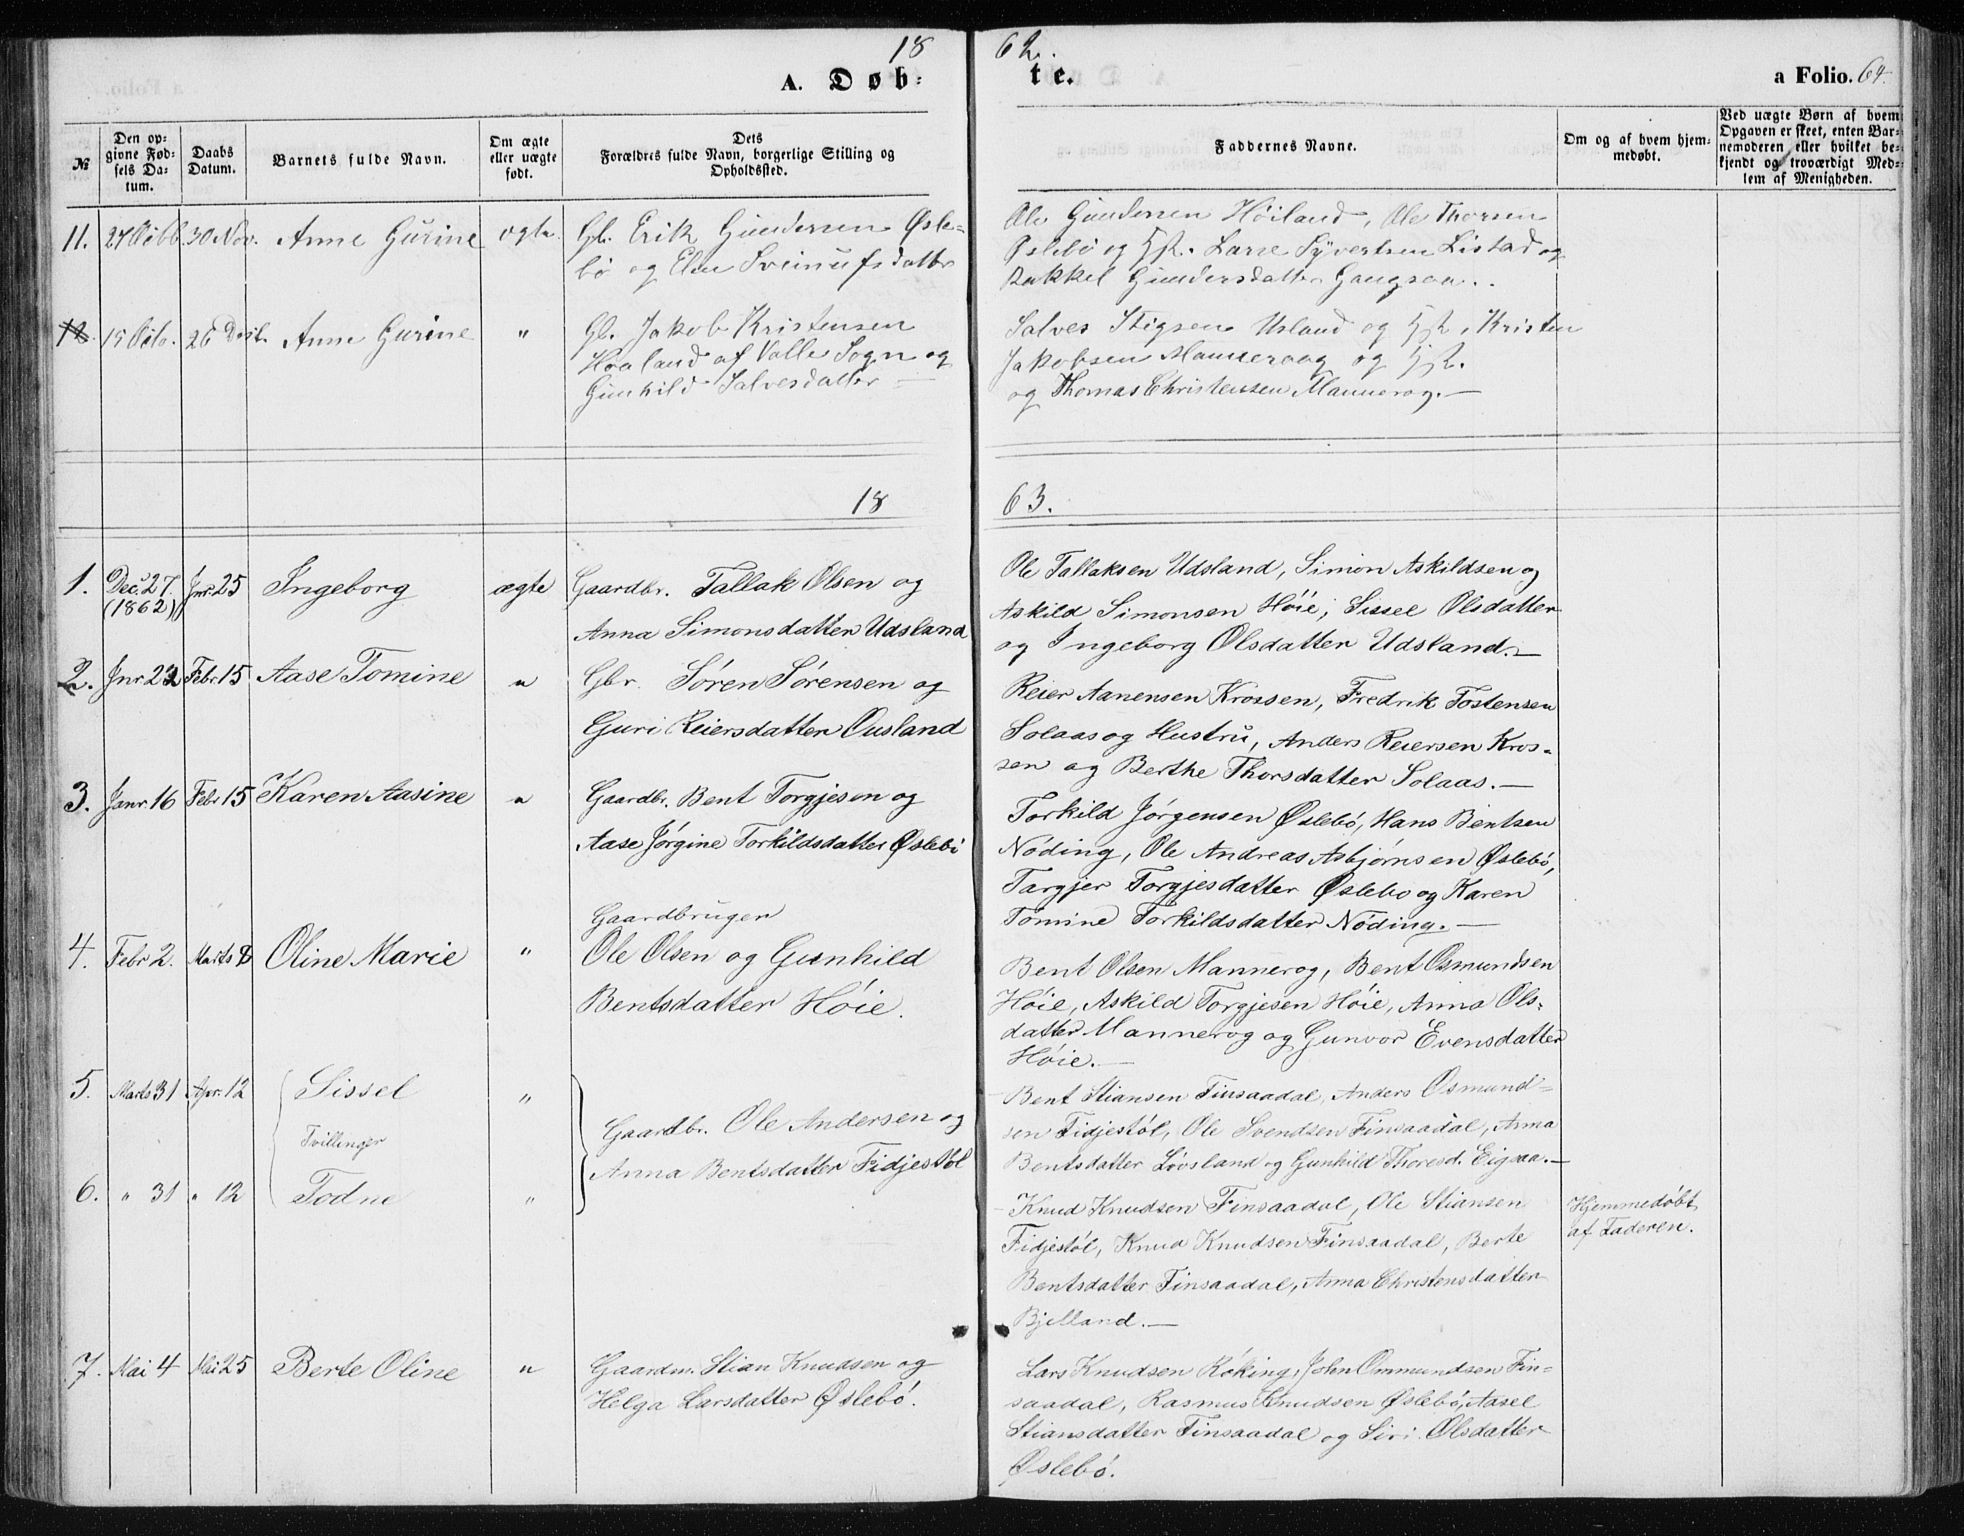 18 62.
A. Døb: te. a Folio. 64.
№
Den op-
givne Fød-
sels Da-
tum.
Daabs
Datum.
Barnets fulde Navn.
Om ægte
eller uægte
født.
Dets
Forældres fulde Navn, borgerlige Stilling og
Opholdssted.
Faddernes Navne.
Om og af hvem hjem-
medøbt.
Ved uægte Børn af hvem
Opgaven er skeet, enten Bar-
nemoderen eller hvilket be-
kjendt og troværdigt Med-
lem af Menigheden.
11. 27 30 Nov. Anne Gurine
Gl. Erik Gundersen Øsle-
bø og Elen
Ole Gundersen Høiland, Ole Thorsen
Øslebø og Hst. Larse Syvertsen Listad og
Rakkel Gundersdatter
12. 15 Octo. 26 Anne Gurine "
Gl. Jakob Kristensen
Haaland af Valle Sogn og
Gunhild Salvesdatter —
Salves Stigsen Usland og Hst, Kristen
Jakobsen Manneraag og Hst.
og Thomas Christensen Mannerog. —
18 63.
1. Dec. 27. (1862) Jnr. 25 Ingeborg ægte
Gaardbr. Tallak Olsen og
Anna Simonsdatter Udsland
Ole Tallaksen Udsland, Simon Askildsen og
Askild Simonsen Høie, Sissel Olsdatter
og Ingeborg Olsdatter Udsland. —
2. Jnr 22 Febr 15 Aase Tomine "
Gbr. Søren Sørensen og
Guri Reiersdatter Ousland
Reier Aanensen Krossen, Fredrik Tostensen
Solaas og Hustru, Anders Reiersen Kros-
sen og Berthe Thorsdatter Solaas. —
3. Janr. 16 Febr 15 Karen Aasine "
Gaardbr. Bent Torgjesen og
Aase Jørgine Torkildsdatter Øslebø
Torkild Jørgensen Øslebø, Hans Bentsen
Nøding, Ole Andreas Asbjørnsen Øslebø,
Targjer Torgjesdatter Øslebo og Karen
Tomine Torkildsdatter Nøding. —
4. Febr 2. Marts 8 Oline Marie "
Gaardbruger
Ole Olsen og Gunhild
Bentsdatter Høie.
Bent Olsen Mannerog, Bent Osmundsen
Høie, Askild Torgjesen Høie, Anna Ols-
datter Mannerog og Gunvor Evensdatter
Høie. —
5. Marts 31 Apr. 12 Sissel "
Tvillinger
Gaardbr. Ole Andersen og
Anna Bentsdatter Fidjestøl
Bent Stiansen Finsaadal, Anders Osmund-
sen Fidjestøl, Ole Svendsen Finsaadal, Anna
Bentsdatter Løvsland og Gunhild Thoresd. Eigsaa. —
6. " 31 " 12 Todne "
Knud Knudsen Finsaadal, Ole Stiansen
Fidjestøl, Knud Knudsen Finsaadal, Berte
Bentsdatter Finsaadal, Anna Christensdatter
Bjelland. —
Hjemmedøbt
af Faderen.
7. Mai 4 Mai 25 Berte Oline "
Gaardm. Stian Knudsen og
Helga Larsdatter Øslebø.
Lars Knudsen Røking, John Ommundsen Fin-
saadal, Rasmus Knudsen Øslebø, Aasel
Stiansdatter Finsaadal og Siri Olsdatter
Øslebø.